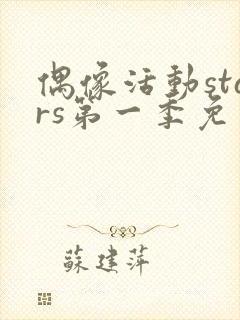 偶像活動sta
rs第一季免
蘇建萍